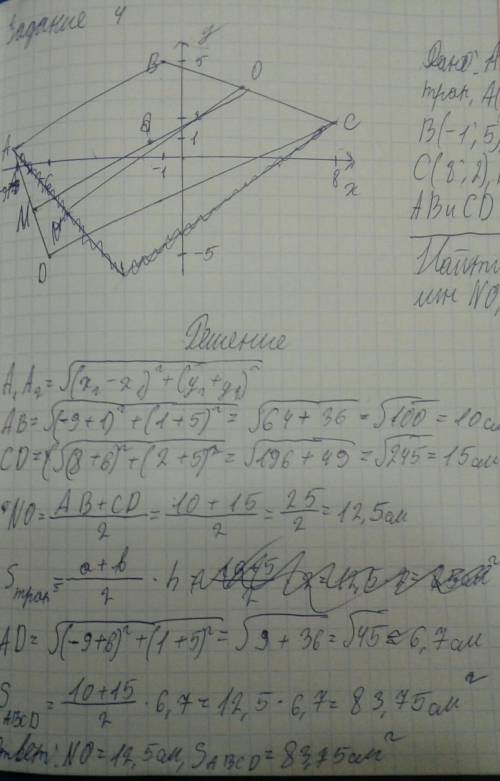 Задание 4
y
B 5 O
B
1 C
A
-1 8 x
M
D
-5
Дано: A
трап, A(
B(-1; 5)
C(8; 2),
AB и CD
Найти
лин NO,
Решение
A₁A₂=√(x₂-x₁)²+(y₂+y₁)²
AB=√(-9+1)²+(1+5)²=√64+36=√100=10см
CD=(√(8+6)²+(2+5)²=√196+49=√245=15см
NO=AB+CD/2=10+15/2=25/2=12,5см
Sтрап=a+b/2·h
AD=√(-9+6)²+(1+5)²=√9+36=√45≈6,7см
SABCD=10+15/2·6,7=12,5·6,7=83,75см²
Ответ: NO=12,5см, SABCD=83,75см²